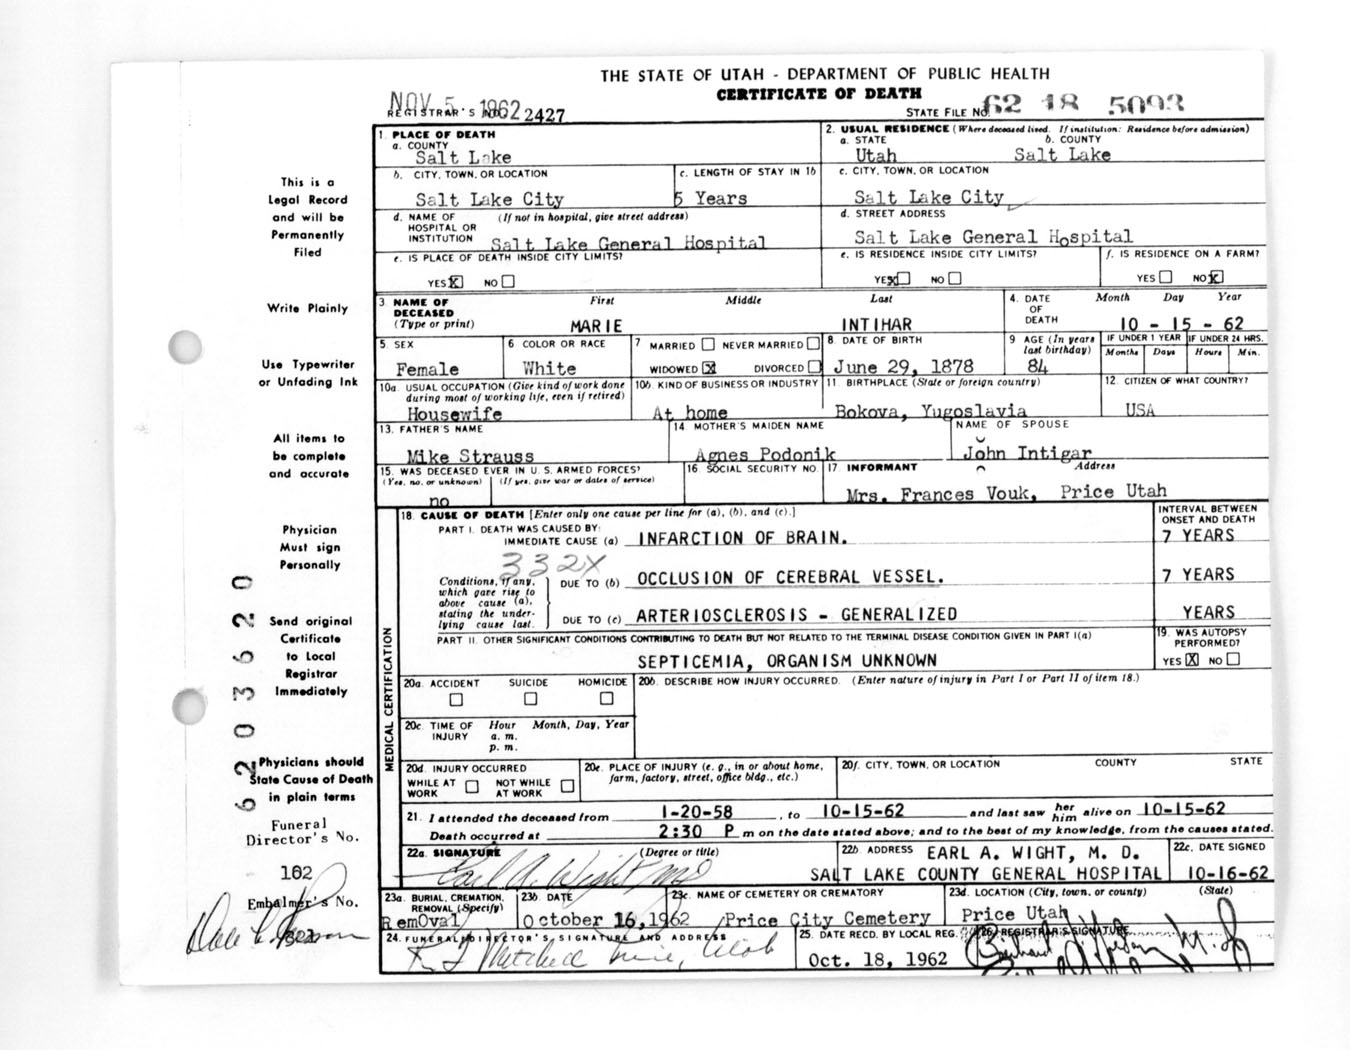 THE STATE OF UTAH - DEPARTMENT OF PUBLIC HEALTH
CERTIFICATE OF DEATH
NOV 5 1962
REGISTRAR'S NO. 2427
STATE FILE NO. 62 18 5093
This is a
Legal Record
and will be
Permanently
Filed
Write Plainly
Use Typewriter
or Unfading Ink
All items to
be complete
and accurate
Physician
Must sign
Personally
Send original
Certificate
to Local
Registrar
Immediately
Physicians should
State Cause of Death
in plain terms
Funeral
Director's No.
162
Embalmer's No.
62 035620
1. PLACE OF DEATH
a. COUNTY
Salt Lake
2. USUAL RESIDENCE (Where deceased lived. If institution: Residence before admission)
a. STATE b. COUNTY
Utah Salt Lake
b. CITY, TOWN, OR LOCATION
Salt Lake City
c. LENGTH OF STAY IN 1b
5 Years
c. CITY, TOWN, OR LOCATION
Salt Lake City
d. NAME OF (If not in hospital, give street address)
HOSPITAL OR
INSTITUTION Salt Lake General Hospital
d. STREET ADDRESS
Salt Lake General Hospital
e. IS PLACE OF DEATH INSIDE CITY LIMITS?
YES X NO
e. IS RESIDENCE INSIDE CITY LIMITS?
YES X NO
f. IS RESIDENCE ON A FARM?
YES NO X
3. NAME OF First Middle Last
DECEASED
(Type or print) MARIE INTIHAR
4. DATE Month Day Year
OF
DEATH 10 - 15 - 62
5. SEX
Female
6 COLOR OR RACE
White
7 MARRIED NEVER MARRIED
WIDOWED X DIVORCED
8. DATE OF BIRTH
June 29, 1878
9 AGE (In years
last birthday)
84
IF UNDER 1 YEAR IF UNDER 24 HRS.
Months Days Hours Min.
10a. USUAL OCCUPATION (Give kind of work done
during most of working life, even if retired)
Housewife
10b. KIND OF BUSINESS OR INDUSTRY
At home
11. BIRTHPLACE (State or foreign country)
Bokova, Yugoslavia
12. CITIZEN OF WHAT COUNTRY?
USA
13. FATHER'S NAME
Mike Strauss
14. MOTHER'S MAIDEN NAME
Agnes Podonik
NAME OF SPOUSE
John Intigar
15. WAS DECEASED EVER IN U. S. ARMED FORCES?
(Yes, no, or unknown) (If yes, give war or dates of service)
no
16. SOCIAL SECURITY NO.
17. INFORMANT Address
Mrs. Frances Vouk, Price Utah
MEDICAL CERTIFICATION
18. CAUSE OF DEATH [Enter only one cause per line for (a), (b), and (c).]
INTERVAL BETWEEN
ONSET AND DEATH
PART I. DEATH WAS CAUSED BY:
IMMEDIATE CAUSE (a) INFARCTION OF BRAIN. 7 YEARS
332X
Conditions, if any,
which gave rise to
above cause (a),
stating the under-
lying cause last.
DUE TO (b) OCCLUSION OF CEREBRAL VESSEL. 7 YEARS
DUE TO (c) ARTERIOSCLEROSIS - GENERALIZED YEARS
PART II. OTHER SIGNIFICANT CONDITIONS CONTRIBUTING TO DEATH BUT NOT RELATED TO THE TERMINAL DISEASE CONDITION GIVEN IN PART I(a)
SEPTICEMIA, ORGANISM UNKNOWN
19. WAS AUTOPSY
PERFORMED?
YES X NO
20a. ACCIDENT SUICIDE HOMICIDE
20b. DESCRIBE HOW INJURY OCCURRED. (Enter nature of injury in Part I or Part II of item 18.)
20c. TIME OF Hour Month, Day, Year
INJURY a. m.
p. m.
20d. INJURY OCCURRED
WHILE AT NOT WHILE
WORK AT WORK
20e. PLACE OF INJURY (e. g., in or about home,
farm, factory, street, office bldg., etc.)
20f. CITY, TOWN, OR LOCATION COUNTY STATE
21. I attended the deceased from 1-20-58, to 10-15-62 and last saw her him alive on 10-15-62
Death occurred at 2:30 P m on the date stated above; and to the best of my knowledge, from the causes stated.
22a. SIGNATURE (Degree or title)
Earl A. Wight MD
22b. ADDRESS EARL A. WIGHT, M. D.
SALT LAKE COUNTY GENERAL HOSPITAL
22c. DATE SIGNED
10-16-62
23a. BURIAL, CREMATION,
REMOVAL (Specify)
RemOval
23b. DATE
October 16, 1962
23c. NAME OF CEMETERY OR CREMATORY
Price City Cemetery
23d. LOCATION (City, town, or county) (State)
Price Utah
24. FUNERAL DIRECTOR'S SIGNATURE AND ADDRESS
Mitchell Price, Utah
25. DATE RECD. BY LOCAL REG.
Oct. 18, 1962
26. REGISTRAR'S SIGNATURE